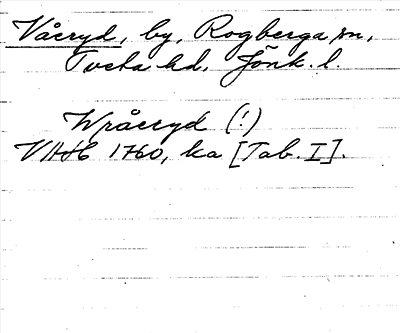 Våcryd, by, Rogberga sn,
Tveta hd, Jönk. l.
Wråcryd (!)
VHAH 1760, ka [Tab. I].